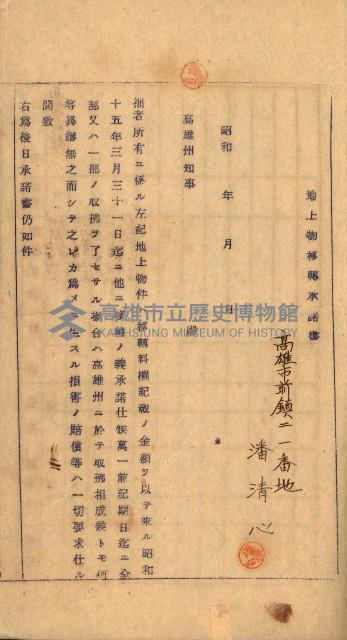 地上物移轉承諾書
高雄市前鎮二一番地
潘清心
昭和 年 月 日
高雄州知事 殿
拙者所有ニ係ル左記地上物件 移轉料欄記載ノ金額ヲ以テ來ル昭和
十五年三月三十一日迄ニ他ニ移轉ノ義承諾仕候萬一前記期日迄ニ全
部又ハ一部ノ取拂ヲ了セサル場合ハ高雄州ニ於テ取拂相成候トモ何
等異議無之而シテ之レカ爲メニ生スル損害ノ賠償等ハ一切要求仕ル
間敷
右爲後日承諾書仍如件
高雄市立歷史博物館
KAOHSIUNG MUSEUM OF HISTORY